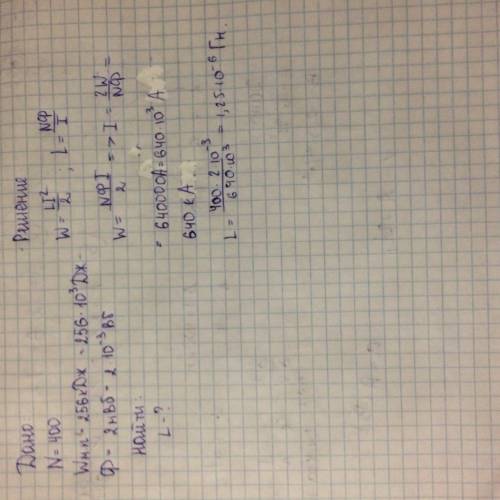 Дано
N = 400
Wм.п = 256 кДж = 256·10³ Дж
Ф = 2 мВб = 2·10⁻³ Вб
найти:
L - ?
Решение
W = LI²/2 ; L = NФ/I
W = NФI/2 => I = 2W/NФ =
= 640000A = 640·10³ A
640 кА
L = 400·2·10⁻³/640·10³ = 1,25·10⁻⁶ Гн.